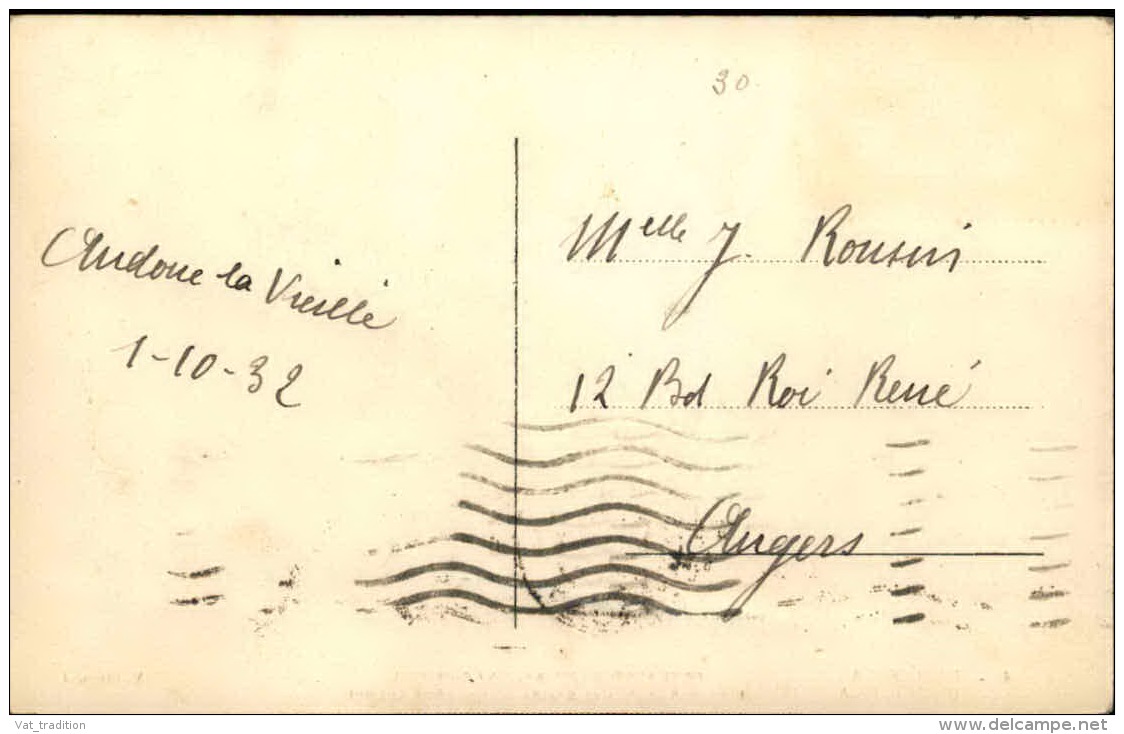 30.
Andone la Vieille
1-10-32
Melle J. Rousin
12 Bd Roi René
Angers
Vat_tradition
www.delcampe.net